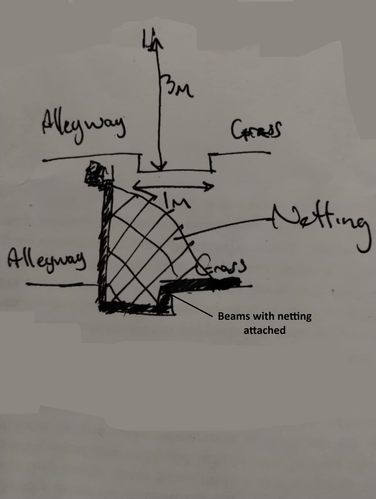 4
3M
Alleyway
Grass
1M
Netting
Alleyway
Grass
Beams with netting
attached